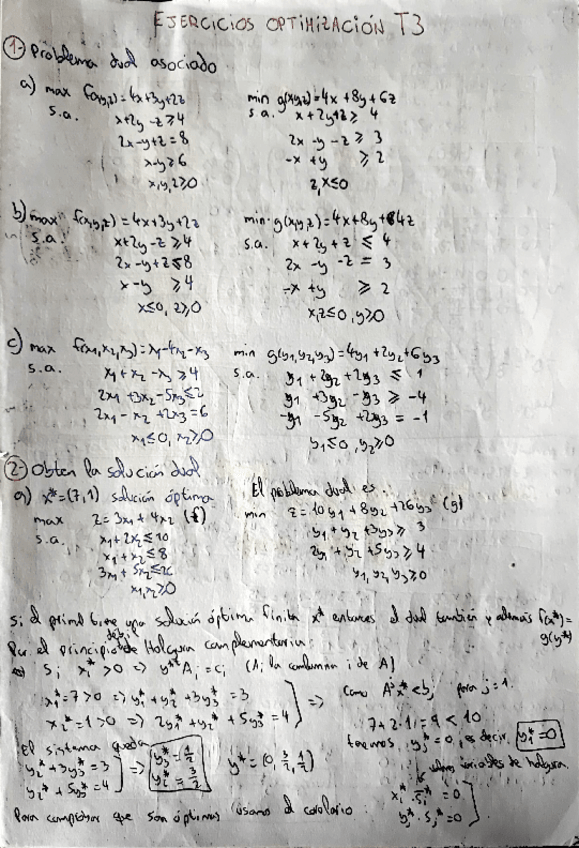 EJERCICIOS OPTIMIZACIÓN T3
1- Problema dual asociado
a) max f(x,y,z)=4x+3y+2z
s.a. x+2y-z≥4
2x-y+z=8
x-y≥6
x,y,z≥0
min g(x,y,z)=4x+8y+6z
s.a. x+2y+z≥4
2x-y-z≥3
-x+y≥2
z,x≤0
b) max f(x,y,z)=4x+3y+2z
s.a. x+2y-z≥4
2x-y+z≤8
x-y≥4
x≤0, z≥0
min g(x,y,z)=4x+8y+4z
s.a. x+2y+z≤4
2x-y-z=3
-x+y≥2
x,z≤0, y≥0
c) max f(x1,x2,x3)=x1-4x2-x3
s.a. x1+x2-x3≥4
2x1+3x2-5x3≤2
2x1-x2+2x3=6
x1≤0, x2≥0
min g(y1,y2,y3)=4y1+2y2+6y3
s.a. y1+2y2+2y3≤1
y1+3y2-y3≥-4
-y1-5y2+2y3=-1
y1≤0, y2≥0
2- Obten la solución dual
a) x*=(7,1) solución óptima
max z=3x1+4x2 (f)
s.a. x1+2x2≤10
x1+x2≤8
3x1+5x2≤26
x1,x2≥0
El problema dual es
min z=10y1+8y2+26y3 (g)
y1+y2+3y3≥3
2y1+y2+5y3≥4
y1,y2,y3≥0
Si el primal tiene una solución óptima finita x* entonces el dual también y además f(x*)=
g(y*)
Por el principio débil de Holgura complementaria:
Si xi*>0 => y*Ai=ci (Ai la columna i de A)
x1*=7>0 => y1*+y2*+3y3*=3
x2*=1>0 => 2y1*+y2*+5y3*=4 ] =>
Como Ajx*<bj para j=1
7+2·1=9<10
tenemos yj*=0, es decir, y1*=0
El sistema queda
y2*+3y3*=3
y2*+5y3*=4 ] => y3*=1/2
y2*=3/2
y*=(0,3/2,1/2)
variables de holgura
xi*·si*=0
yj*·sj*=0
Para comprobar que son óptimas usamos el corolario